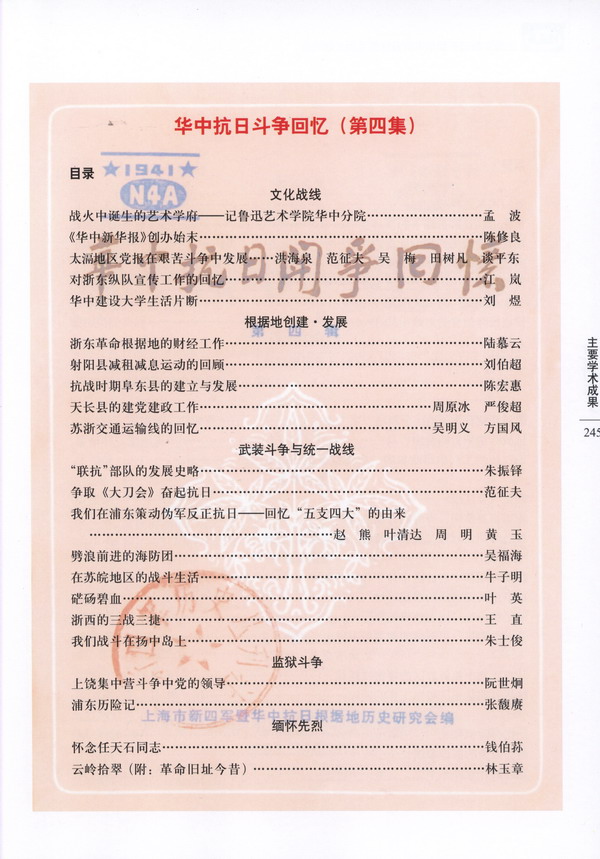 华中抗日斗争回忆（第四集）
目录
1941
N4A
文化战线
战火中诞生的艺术学府——记鲁迅艺术学院华中分院……孟　波
《华中新华报》创办始末……陈修良
太滆地区党报在艰苦斗争中发展……洪海泉　范征夫　吴　梅　田树凡　谈平东
对浙东纵队宣传工作的回忆……江　岚
华中建设大学生活片断……刘　煜
根据地创建·发展
浙东革命根据地的财经工作……陆慕云
射阳县减租减息运动的回顾……刘伯超
抗战时期阜东县的建立与发展……陈宏惠
天长县的建党建政工作……周原冰　严俊超
苏浙交通运输线的回忆……吴明义　方国风
武装斗争与统一战线
“联抗”部队的发展史略……朱振铎
争取《大刀会》奋起抗日……范征夫
我们在浦东策动伪军反正抗日——回忆“五支四大”的由来
……赵　熊　叶清达　周　明　黄　玉
劈浪前进的海防团……吴福海
在苏皖地区的战斗生活……牛子明
硭砀碧血……叶　英
浙西的三战三捷……王　直
我们战斗在扬中岛上……朱士俊
监狱斗争
上饶集中营斗争中党的领导……阮世炯
浦东历险记……张馥赓
上海市新四军暨华中抗日根据地历史研究会编
缅怀先烈
怀念任天石同志……钱伯荪
云岭拾翠（附：革命旧址今昔）……林玉章
主要学术成果
245